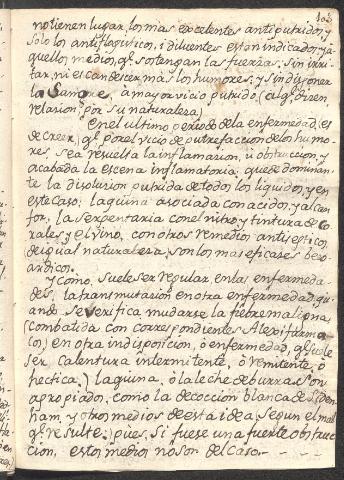 102
no tienen lugar, los mas excelentes antiputridos, y
solo los antiflogisticos, i diluentes estan indicados: y a
quellos medios, q.e sostengan las fuerzas, sin irri-
tar, ni escandecer, mas los humores; y sin disponer
la Sangre, a mayor vicio putrido, (al q.e dizen
relacion, por su naturaleza)
En el ultimo periodo de la enfermedad, es
de creer, q.e por el vicio de putrefaccion de los humo-
res, sea resuelta la inflamacion, u obstruccion, y
acabada la escena inflamatoria: quese dominan-
te la disolucion putrida de todos los liquidos: y en
este caso: la quina asociada con acidos: y alcan-
for, la serpentaria con el nitro, y tintura de Co-
rales, y el vino, con otros remedios antisepticos,
de igual naturaleza, son los mas eficases beso-
ardicos.
Y como, suele ser regular, en las enfermeda-
des, la transmutacion en otra enfermedad, qu-
ando, se verifica mudarse la fiebre maligna,
(combatida con correspondientes Alexifarma-
cos,) en otra indisposicion, ò enfermedad, q.e suele
ser calentura intermitente, ò remitente, ò
hectica.) la quina, ò la leche de burra son
apropiado, como la decoccion blanca de Siden
ham, y otros medios de está idea, segun el mal
q.e resulte: pues, si fuese una fuerte obstruc-
cion, estos medios no son del caso.